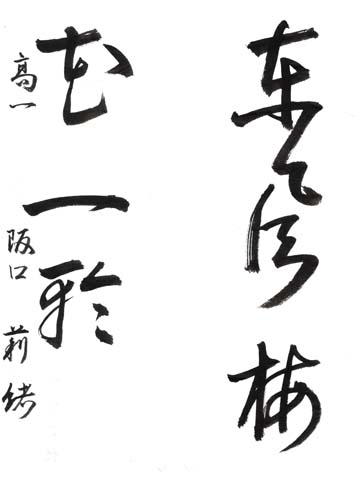 東風梅
花一
高一 阪口 莉緒